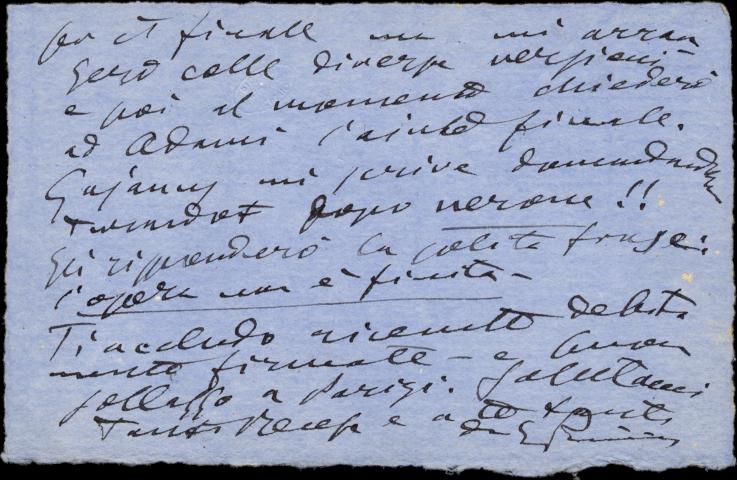 per il finale ma mi arran
gerò colle diverse versioni
e poi al momento chiederò
ad Adami l'aiuto finale.
mi scrive domandando
Turandot dopo Nerone!!
Gli risponderò la solita frase:
l'opera non è finita—
Ti accludo ricevute debita
mente firmate — e buon
a Parigi. Salutami
Tanti e a te tanti